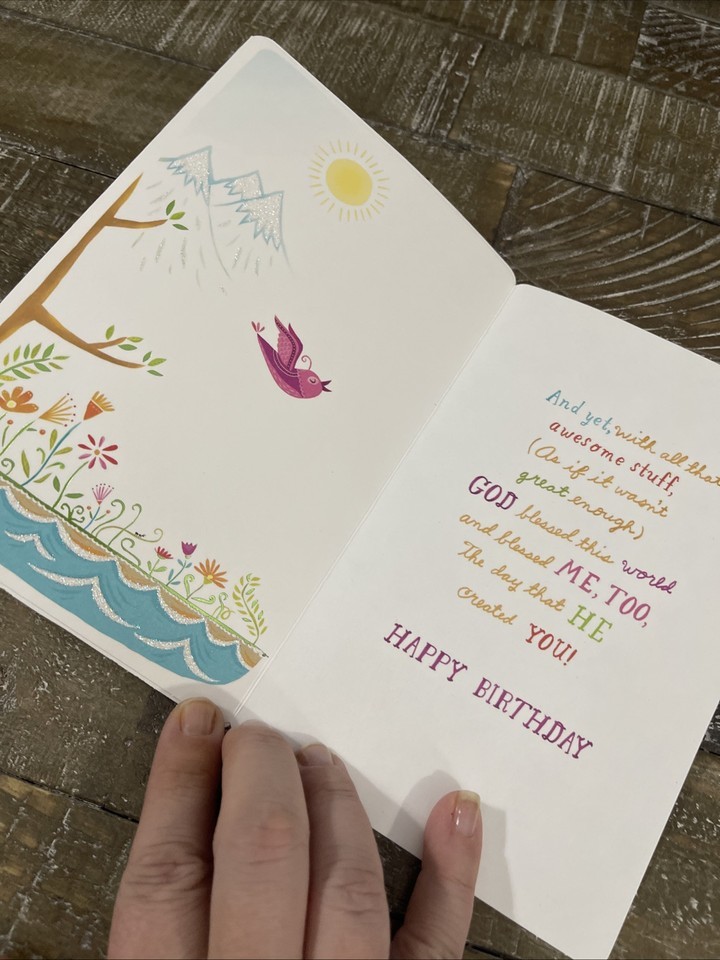 And yet, with all that
awesome stuff,
(As if it wasn't
great enough)
GOD blessed this world
and blessed ME, TOO,
The day that HE
created YOU!
HAPPY BIRTHDAY